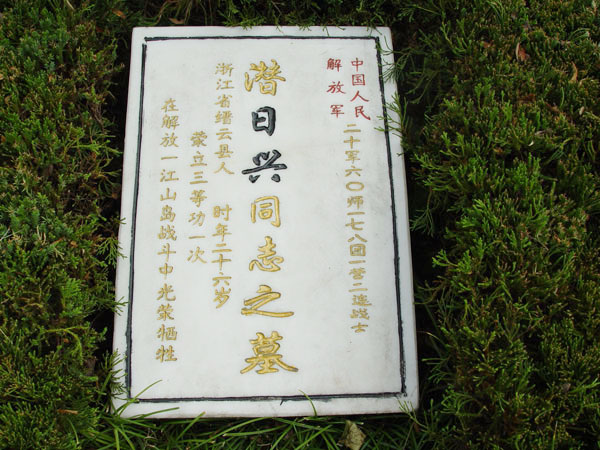 中国人民
解放军
二十军六〇师一七八团一营二连战士
潜日兴同志之墓
浙江省缙云县人 时年二十六岁
荣立三等功一次
在解放一江山岛战斗中光荣牺牲